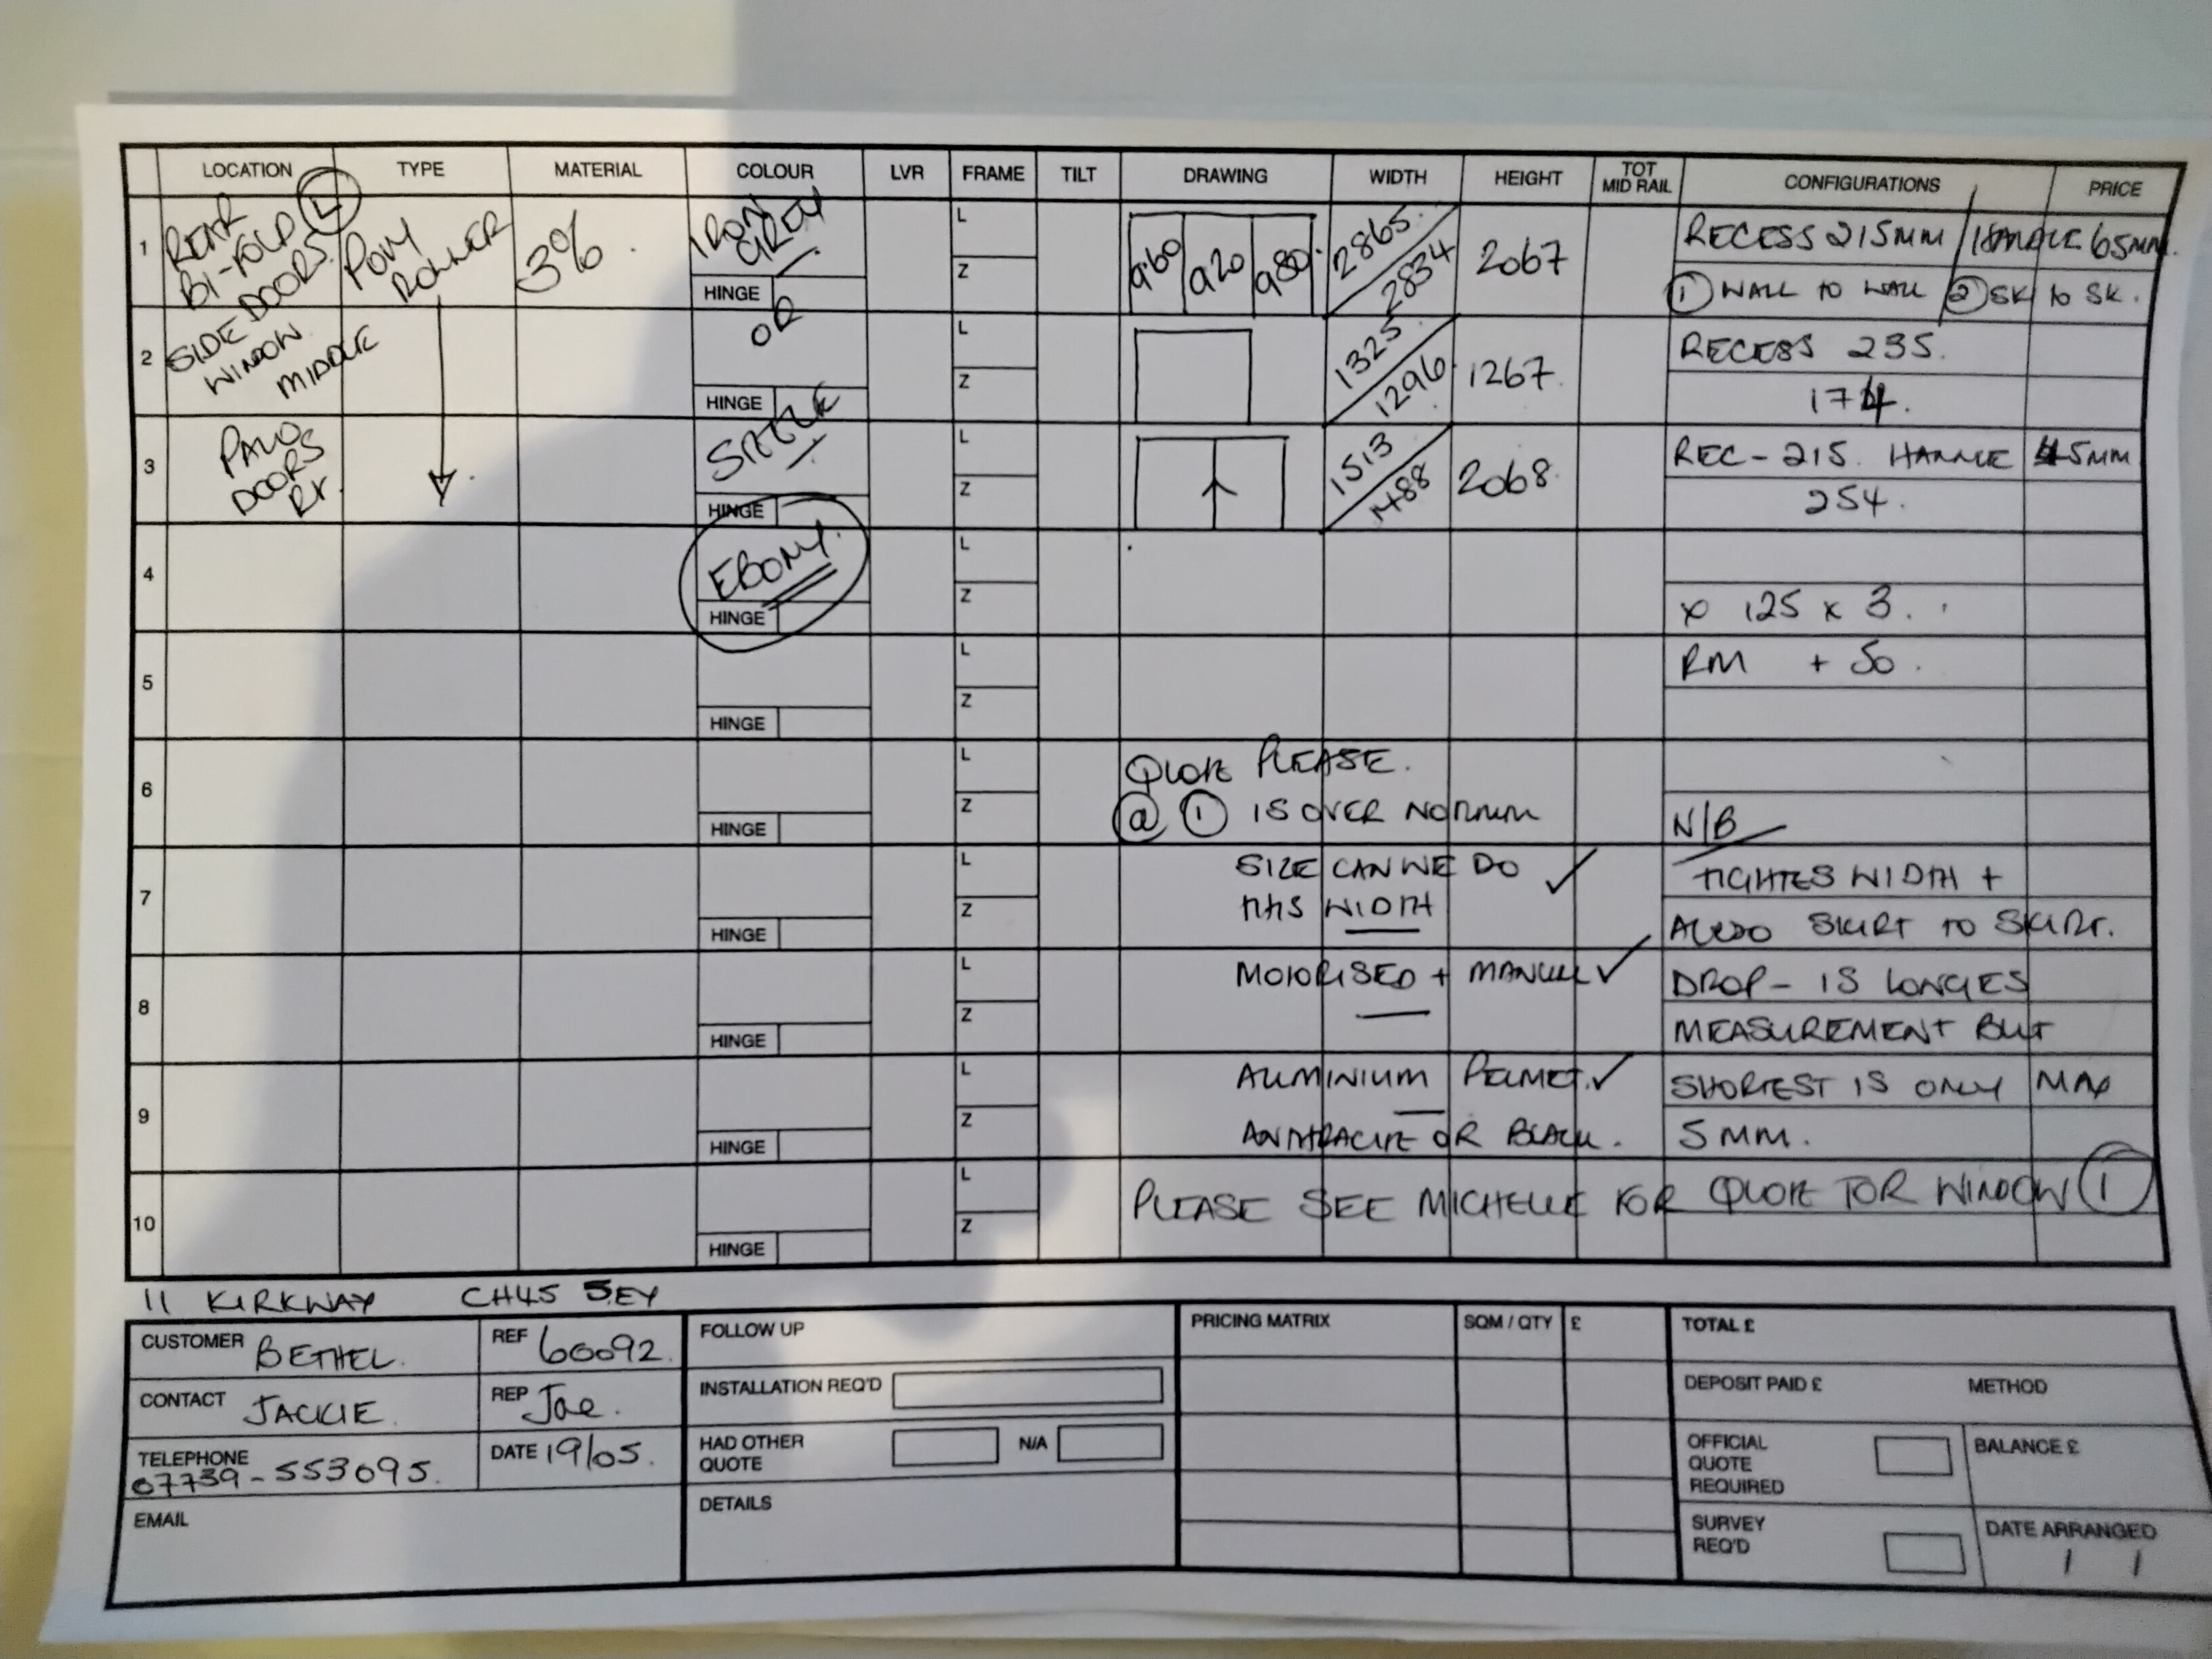 LOCATION TYPE MATERIAL COLOUR LVR FRAME TILT DRAWING WIDTH HEIGHT TOT MID RAIL CONFIGURATIONS PRICE
1 REAR BI-FOLD DOORS L ROLLER 3% IRON GREY HINGE L Z 960 920 980 2865 2834 2067 RECESS 215MM / HANDLE 65MM.
① WALL TO WALL ② SK to SK.
OR
2 SIDE WINDOW MIDDLE HINGE L Z 1325 1296 1267 RECESS 235.
174.
3 DOORS RT. HINGE L Z 1513 1488 2068 REC-215. HANDLE 45MM
254.
4 EBONY. HINGE L Z
x 125 x 3.
5 HINGE L Z RM + 50.
6 HINGE L Z QUOTE PLEASE.
@ ① IS OVER NORMAL N/B
7 HINGE L Z SIZE CAN WE DO ✓ TIGHTES WIDTH +
THIS WIDTH SKIRT TO SKIRT.
8 HINGE L Z MOTORISED + MANUAL ✓ DROP - IS LONGES
MEASUREMENT BUT
9 HINGE L Z ALUMINIUM PELMET. ✓ SHORTEST IS ONLY MAX
ANTHRACITE OR BLACK. 5MM.
10 HINGE L Z PLEASE SEE MICHELLE FOR QUOTE FOR WINDOW ①
11 KIRKWAY CH45 5EY
CUSTOMER BETHEL. REF 60092.
CONTACT JACKIE. REP Joe.
TELEPHONE 07739-553095. DATE 19/05.
EMAIL
FOLLOW UP
INSTALLATION REQ'D
HAD OTHER QUOTE N/A
DETAILS
PRICING MATRIX SQM / QTY £
TOTAL £
DEPOSIT PAID £ METHOD
OFFICIAL QUOTE REQUIRED BALANCE £
SURVEY REQ'D DATE ARRANGED
/ /